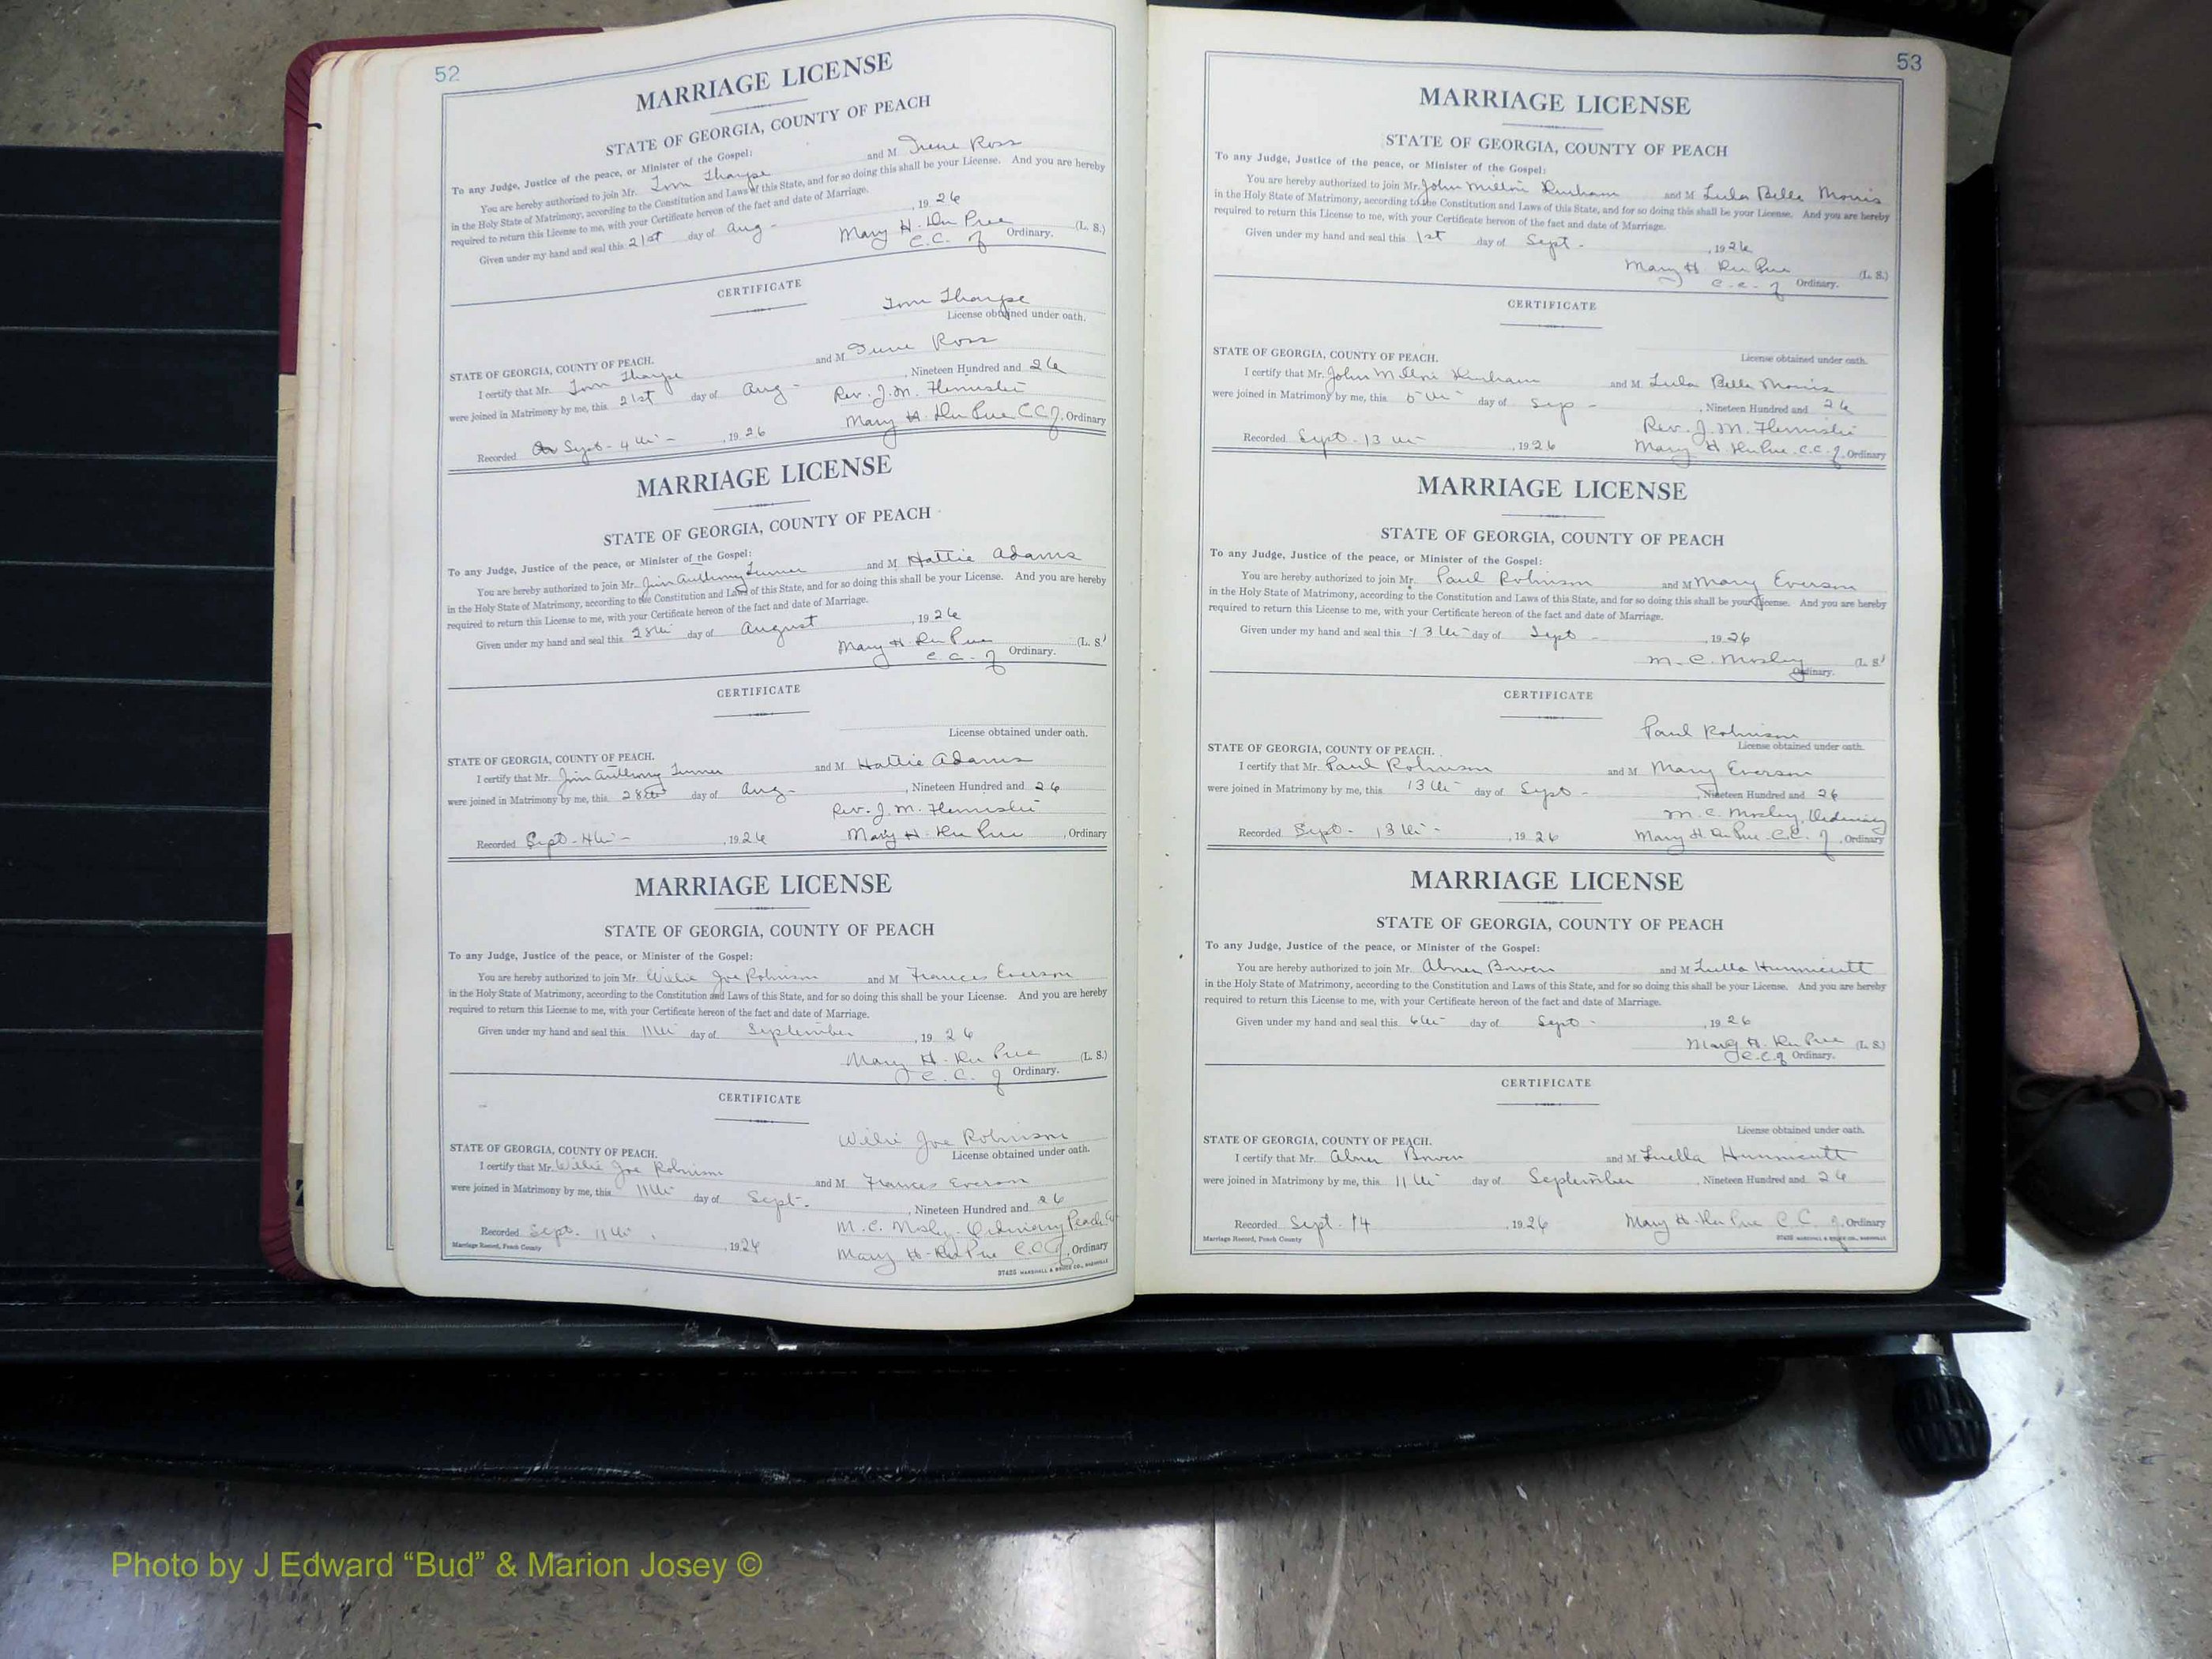 52
MARRIAGE LICENSE
STATE OF GEORGIA, COUNTY OF PEACH
To any Judge, Justice of the peace, or Minister of the Gospel:
You are hereby authorized to join Mr. Tom Tharpe and M Irene Ross
in the Holy State of Matrimony, according to the Constitution and Laws of this State, and for so doing this shall be your License. And you are hereby
required to return this License to me, with your Certificate hereon of the fact and date of Marriage.
Given under my hand and seal this 21st day of Aug - , 19 26
Mary H. Du Pree (L. S.)
C.C. of Ordinary.
CERTIFICATE
Tom Tharpe
License obtained under oath.
STATE OF GEORGIA, COUNTY OF PEACH.
I certify that Mr. Tom Tharpe and M Irene Ross
were joined in Matrimony by me, this 21st day of Aug - , Nineteen Hundred and 26
Rev. J. M.
Recorded Sept - 4th - , 19 26 Mary H. Du Pree C.C. of, Ordinary
MARRIAGE LICENSE
STATE OF GEORGIA, COUNTY OF PEACH
To any Judge, Justice of the peace, or Minister of the Gospel:
You are hereby authorized to join Mr. Jim Anthony Turner and M Hattie Adams
in the Holy State of Matrimony, according to the Constitution and Laws of this State, and for so doing this shall be your License. And you are hereby
required to return this License to me, with your Certificate hereon of the fact and date of Marriage.
Given under my hand and seal this 28th day of August , 19 26
Mary H Du Pree (L. S.)
C.C. of Ordinary.
CERTIFICATE
License obtained under oath.
STATE OF GEORGIA, COUNTY OF PEACH.
I certify that Mr. Jim Anthony Turner and M Hattie Adams
were joined in Matrimony by me, this 28th day of Aug - , Nineteen Hundred and 26
Rev. J. M.
Recorded Sept - 4th - , 19 26 Mary H. Du Pree , Ordinary
MARRIAGE LICENSE
STATE OF GEORGIA, COUNTY OF PEACH
To any Judge, Justice of the peace, or Minister of the Gospel:
You are hereby authorized to join Mr. Willie Joe Robinson and M Frances Everson
in the Holy State of Matrimony, according to the Constitution and Laws of this State, and for so doing this shall be your License. And you are hereby
required to return this License to me, with your Certificate hereon of the fact and date of Marriage.
Given under my hand and seal this 11th day of September , 19 26
Mary H. Du Pree (L. S.)
C.C. of Ordinary.
CERTIFICATE
Willie Joe Robinson
License obtained under oath.
STATE OF GEORGIA, COUNTY OF PEACH.
I certify that Mr. Willie Joe Robinson and M Frances Everson
were joined in Matrimony by me, this 11th day of Sept. , Nineteen Hundred and 26
M. C. Mosley, Ordinary Peach Co
Recorded Sept. 11th , 1926 Mary H. Du Pree C.C. of, Ordinary
Marriage Record, Peach County 37425 MARSHALL & BRUCE CO., NASHVILLE
53
MARRIAGE LICENSE
STATE OF GEORGIA, COUNTY OF PEACH
To any Judge, Justice of the peace, or Minister of the Gospel:
You are hereby authorized to join Mr. John Milton and M Lula Belle Morris
in the Holy State of Matrimony, according to the Constitution and Laws of this State, and for so doing this shall be your License. And you are hereby
required to return this License to me, with your Certificate hereon of the fact and date of Marriage.
Given under my hand and seal this 1st day of Sept - , 1926
Mary H Du Pree (L. S.)
C.C. of Ordinary.
CERTIFICATE
License obtained under oath.
STATE OF GEORGIA, COUNTY OF PEACH.
I certify that Mr. John Milton and M Lula Belle Morris
were joined in Matrimony by me, this 5th - day of Sep - , Nineteen Hundred and 26
Rev. J. M.
Recorded Sept - 13th , 1926 Mary H. Du Pree, C.C. of, Ordinary
MARRIAGE LICENSE
STATE OF GEORGIA, COUNTY OF PEACH
To any Judge, Justice of the peace, or Minister of the Gospel:
You are hereby authorized to join Mr. Paul Robinson and M Mary Everson
in the Holy State of Matrimony, according to the Constitution and Laws of this State, and for so doing this shall be your License. And you are hereby
required to return this License to me, with your Certificate hereon of the fact and date of Marriage.
Given under my hand and seal this 13th - day of Sept - , 1926
M. C. Mosley (L. S.)
Ordinary.
CERTIFICATE
Paul Robinson
License obtained under oath.
STATE OF GEORGIA, COUNTY OF PEACH.
I certify that Mr. Paul Robinson and M Mary Everson
were joined in Matrimony by me, this 13th day of Sept - , Nineteen Hundred and 26
M. C. Mosley, Ordinary
Recorded Sept - 13th - , 19 26 Mary H. Du Pree. C.C. of, Ordinary
MARRIAGE LICENSE
STATE OF GEORGIA, COUNTY OF PEACH
To any Judge, Justice of the peace, or Minister of the Gospel:
You are hereby authorized to join Mr. Abner Bowen and M Luella Hunnicutt
in the Holy State of Matrimony, according to the Constitution and Laws of this State, and for so doing this shall be your License. And you are hereby
required to return this License to me, with your Certificate hereon of the fact and date of Marriage.
Given under my hand and seal this 6th - day of Sept - , 19 26
Mary H. Du Pree (L. S.)
C.C. of Ordinary.
CERTIFICATE
License obtained under oath.
STATE OF GEORGIA, COUNTY OF PEACH.
I certify that Mr. Abner Bowen and M Luella Hunnicutt
were joined in Matrimony by me, this 11th day of September , Nineteen Hundred and 26
Recorded Sept. 14 , 1926 Mary H. Du Pree C.C. of, Ordinary
Marriage Record, Peach County 37425 MARSHALL & BRUCE CO., NASHVILLE
Photo by J Edward “Bud” & Marion Josey ©